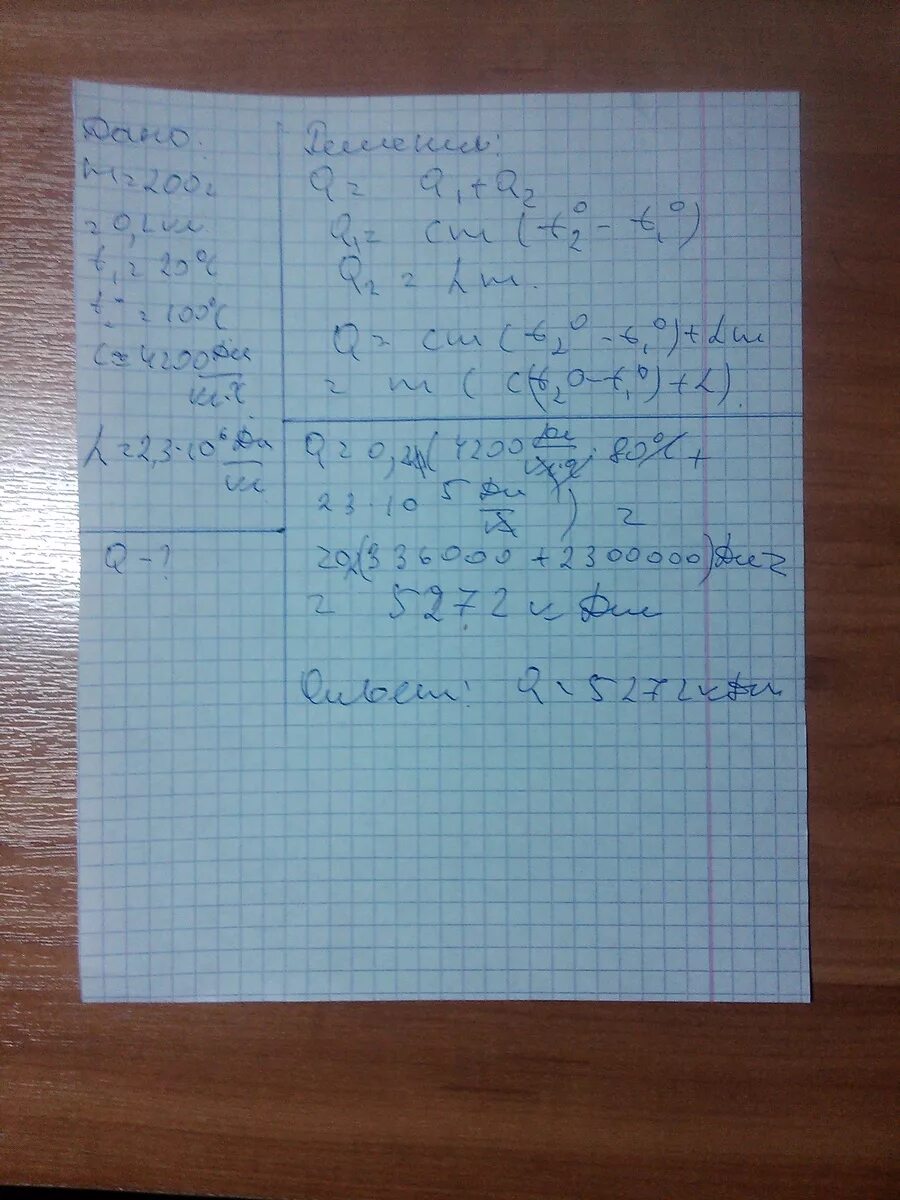 Дано:
m = 200г
= 0,2 кг
t₁ = 20°C
t₂ = 100°C
c = 4200 Дж
кг·°C
L = 2,3·10⁶ Дж
кг
Q - ?
Решение:
Q = Q₁ + Q₂
Q₁ = cm (t₂° - t₁°)
Q₂ = Lm.
Q = cm (t₂° - t₁°) + Lm
= m ( c(t₂° - t₁°) + L).
Q = 0,2 ( 4200 Дж/кг·°C · 80°C +
23·10⁵ Дж/кг ) =
= 0,2(336000 + 2300000) Дж =
= 527,2 кДж
Ответ: Q = 527,2 кДж